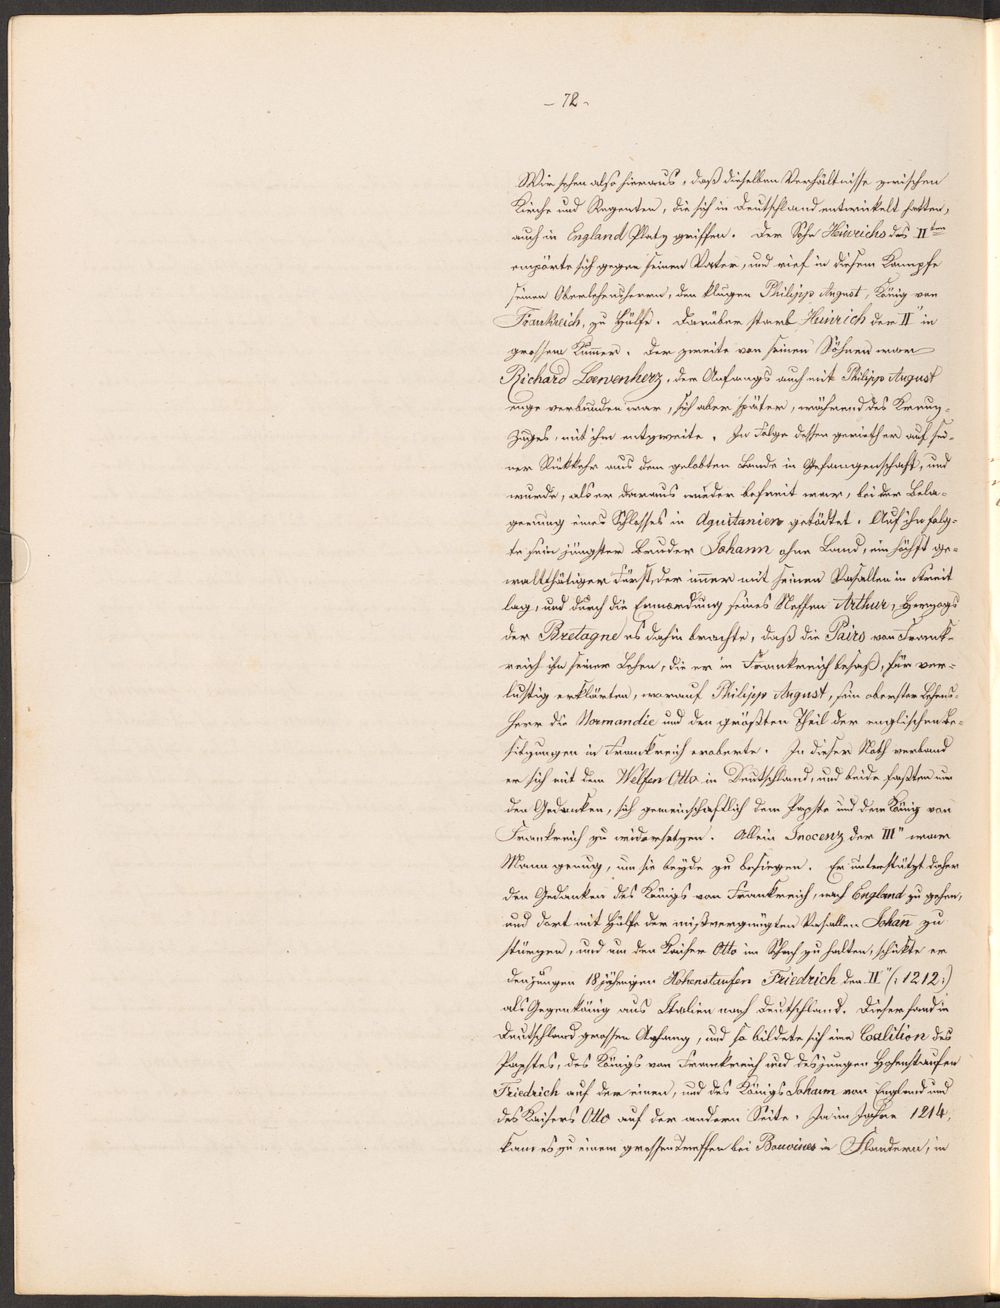 - 72 -
Wir sehen also hieraus, daß dieselben Verhältnisse zwischen
Kirche und Regenten, die sich in Deutschland entwickelt hatten,
auch in England Platz griffen. Der Sohn Heinrichs des IIten
empörte sich gegen seinen Vater, und rief in diesem Kampfe
seinen Oberlehensherrn, den klugen Philipp August, König von
Frankreich, zu Hülfe. Darüber starb Heinrich der II" in
grossem Kummer. Der zweite von seinen Söhnen war
Richard Loewenherz, der Anfangs auch mit Philipp August
enge verbunden war, sich aber später, während des Kreuz-
zuges, mit ihm entzweite. In Folge dessen gerieth er auf sei-
ner Rükkehr aus dem gelobten Lande in Gefangenschaft, und
wurde, als er daraus wieder befreit war, bei der Bela-
gerung eines Schlosses in Aquitanien getödtet. Auf ihn folg-
te sein jüngster Bruder Johann ohne Land, ein höchst ge-
waltthätiger Fürst, der immer mit seinen Vasallen in Streit
lag, und durch die Ermordung seines Neffen Arthur, Herzogs
der Bretagne es dahin brachte, daß die Pairs von Frank-
reich ihn seiner Lehen, die er in Frankreich besaß, für ver-
lustig erklärten, worauf Philipp August, sein oberster Lehens-
herr die Normandie und den größten Theil der englischen Be-
sitzungen in Frankreich eroberte. In dieser Noth verband
er sich mit dem Welfen Otto in Deutschland, und beide faßten nun
den Gedanken, sich gemeinschaftlich dem Papste und dem König von
Frankreich zu widersetzen. Allein Inocenz der III" war
Mann genug, um sie beyde zu besiegen. Er unterstützt daher
den Gedanken des Königs von Frankreich, nach England zu gehen,
und dort mit Hülfe der mißvergnügten Vasallen Johan̄ zu
stürzen, und um den Kaiser Otto im Schach zu halten, schikte er
den jungen 18 jährigen Hohenstaufen Friedrich den II" (:1212:)
als Gegenkönig aus Italien nach Deutschland. Dieser fand in
Deutschland grossen Anhang, und so bildete sich eine Coalition des
Papstes, des Königs von Frankreich und des jungen Hohenstaufen
Friedrich auf der einen, und des Königs Johann von England und
des Kaisers Otto auf der andern Seite. Ja im Jahre 1214,
kam es zu einem grossen Treffen bei Bouvines in Flandern, in